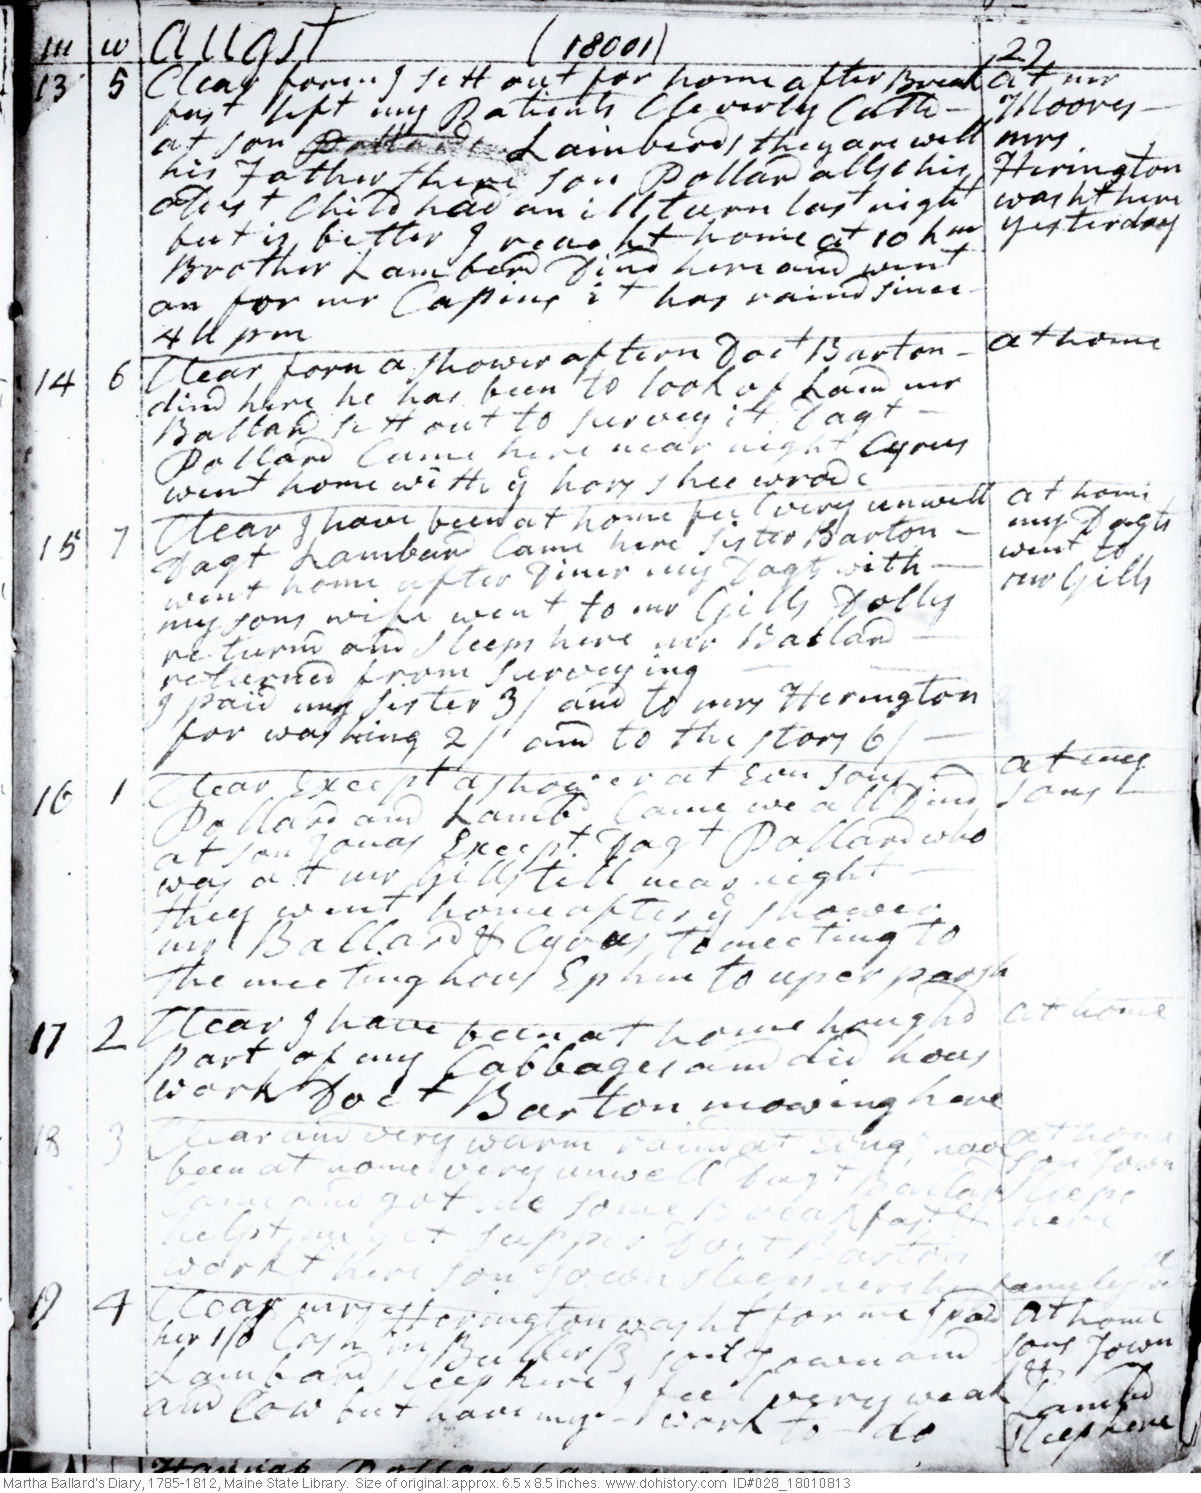 m w August (18001) 22
13 5 Clear foren I sett out for home after Break at mr
fast left my Patients Cleverly Calld Moores
at son Lambards they are well mrs
his Father there son Pollard allso his Herington
oldest Child had an ill turn last night washt here
but is better I reacht home at 10 h mn yesterday
Brother Lambard Dind here and went
on for mr Capins it has raind since
4 h pm
14 6 Clear forn a shower aftern Doct Barton at home
dind here he has been to look of Land mr
Ballard sett out to survey it Dagt
Pollard Came here near night Cyrus
went home with ye hors shee wrode
15 7 Clear I have been at home feel very unwell at home
Dagt Lambard Came here sister Barton my Dagts
went home after Diner my Dagts with went to
my sons wife went to mr Gills Dolly mr Gills
returnd and sleeps here mr Ballard
returned from surveying
I paid my sister 3/ and to mrs Herington
for washing 2/ and to the stors 6/
16 1 Clear Except a shower at Evn sons at my
Pollard and Lambd Came we all Dind sons
at son Jonas Except Dagt Pollard who
was at mr Gills till near night
they went home after ye shower
mr Ballard & Cyrus to meeting to
the meeting hous Ephm to uper parsh
17 2 Clear I have been at home houghd at home
part of my Cabbages and did hous
work Doct Barton mowing here
18 3 Clear and very warm raind at Evng I have at home
been at home very unwell Dagt Ballard son Town
Came and got me some Breakfast & sleeps
helpt me get supper Doct Barton here
workt here son Town sleeps here
4 Clear mrs Herington washt for me I paid at home
her 1/6 Cash in Butter son Town and sons Town
Lambard sleep here I feel very weak &
and Low but have my work to do Lambd
sleep here
Martha Ballard's Diary, 1785-1812, Maine State Library. Size of original: approx. 6.5 x 8.5 inches. www.dohistory.com ID#028_18010813